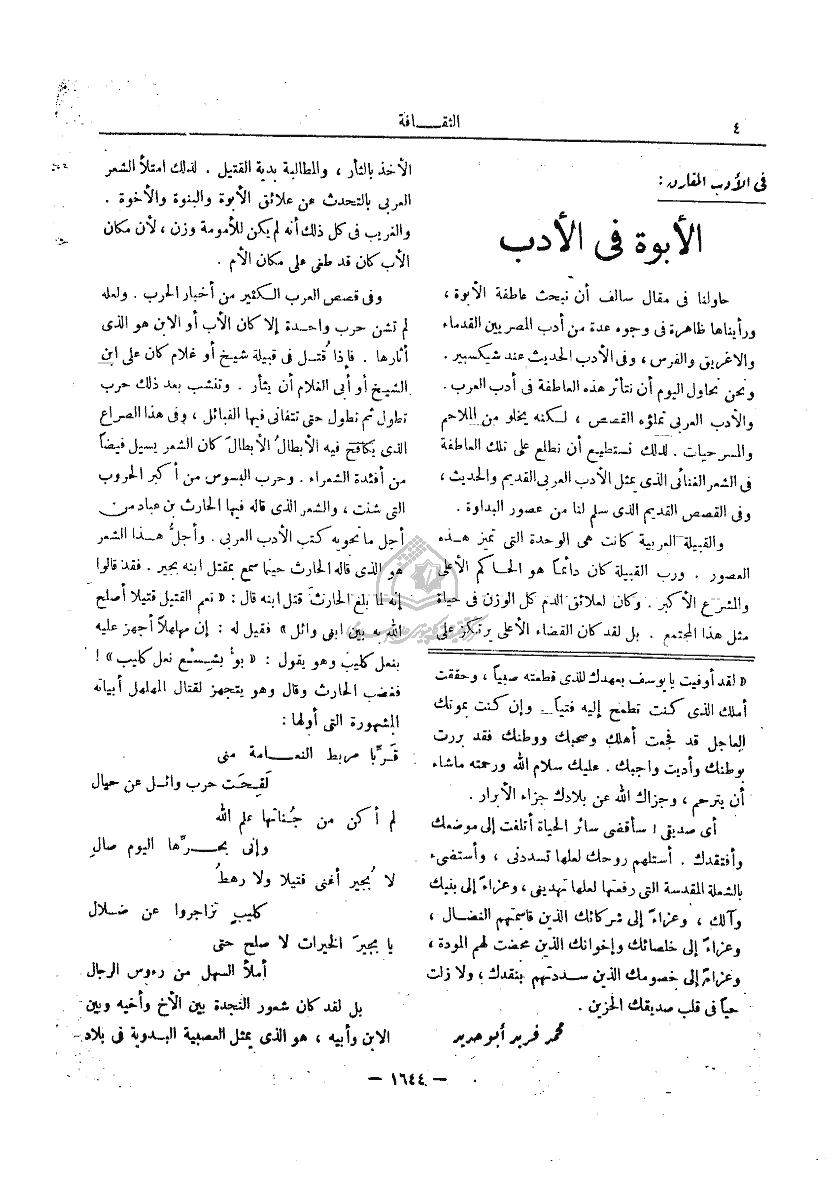 ٤
الثقافة
في الأدب المقارن :
الأبوة في الأدب
حاولنا في مقال سالف أن نبحث عاطفة الأبوة ،
ورأيناها ظاهرة في وجوه عدة من أدب المصريين القدماء
والاغريق والفرس ، وفي الأدب الحديث عند شيكسبير .
ونحن نحاول اليوم أن نتأثر هذه العاطفة في أدب العرب .
والأدب العربي تملؤه القصص ، لكنه يخلو من الملاحم
والمسرحيات . لذلك نستطيع أن نطلع على تلك العاطفة
في الشعر الغنائي الذي يمثل الأدب العربي القديم والحديث ،
وفي القصص القديم الذي سلم لنا من عصور البداوة .
والقبيلة العربية كانت هي الوحدة التي تميز هذه
العصور . ورب القبيلة كان دائماً هو الحاكم الأعلى
والمشرع الأكبر . وكان لعلائق الدم كل الوزن في حياة
مثل هذا المجتمع . بل لقد كان القضاء الأعلى يرتكز على
« لقد أوفيت يا يوسف بعهدك للذي قطعته صبياً ، وحققت
أملك الذي كنت تطمح إليه فتياً وإن كنت بموتك
العاجل قد فجعت أهلك وصحبك ووطنك فقد بررت
بوطنك وأديت واجبك . عليك سلام الله ورحمته ماشاء
أن يترحم ، وجزاك الله عن بلادك جزاء الأبرار .
أي صديقي ! سأقضي سائر الحياة أتلفت إلى موضعك
وأفتقدك . أستلهم روحك لعلها تسددني ، وأستضيء
بالشعلة المقدسة التي رفعتها لعلها تهديني ، وعزاءً إلى بنيك
وآلك ، وعزاءً إلى شركائك الذين قاسمتهم النضال ،
وعزاءً إلى خلصائك وإخوانك الذين محضت لهم المودة ،
وعزاءً إلى خصومك الذين سددتهم بنقدك ، ولا زلت
حياً في قلب صديقك الحزين .
محمد فريد أبو حديد
الأخذ بالثأر ، والمطالبة بدية القتيل . لذلك امتلأ الشعر
العربي بالتحدث عن علائق الأبوة والبنوة والأخوة .
والغريب في كل ذلك أنه لم يكن للأمومة وزن ، لأن مكان
الأب كان قد طغى على مكان الأم .
وفي قصص العرب الكثير من أخبار الحرب . ولعله
لم تشن حرب واحدة إلا كان الأب أو الابن هو الذي
أثارها . فإذا قُتل في قبيلة شيخ أو غلام كان على ابن
الشيخ أو أبي الغلام أن يثأر . وتنشب بعد ذلك حرب
تطول ثم تطول حتى تتفانى فيها القبائل ، وفي هذا الصراع
الذي يكافح فيه الأبطالُ الأبطالَ كان الشعر يسيل فيضاً
من أفئدة الشعراء . وحرب البسوس من أكبر الحروب
التي شنت ، والشعر الذي قاله فيها الحارث بن عباد من
أجل ما تحويه كتب الأدب العربي . وأجلُّ هذا الشعر
هو الذي قاله الحارث حينما سمع بمقتل ابنه بجير . فقد قالوا
إنه لما بلغ الحارث قتل ابنه قال : « نعم القتيل قتيلا أصلح
الله به بين ابني وائل » فقيل له : إن مهلهلاً أجهز عليه
بنعل كليب وهو يقول : « بؤ بشِسْع نعل كليب » !
فغضب الحارث وقال وهو يتجهز لقتال المهلهل أبياته
المشهورة التي أولها :
قَرِّبا مربط النعامة مني
لَقِحَت حرب وائل عن حيال
لم أكن من جُناتها علم الله
وإنى بحرِّها اليوم صالِ
لا بُجير أغنى قتيلا ولا رهطُ
كليبٍ تزاجروا عن ضلال
يا بجيرَ الخيرات لا صلح حتى
أملأ السهل من رءوس الرجال
بل لقد كان شعور النجدة بين الأخ وأخيه وبين
الابن وأبيه ، هو الذي يمثل العصبية البدوية في بلاد
— ١٦٤٤ —